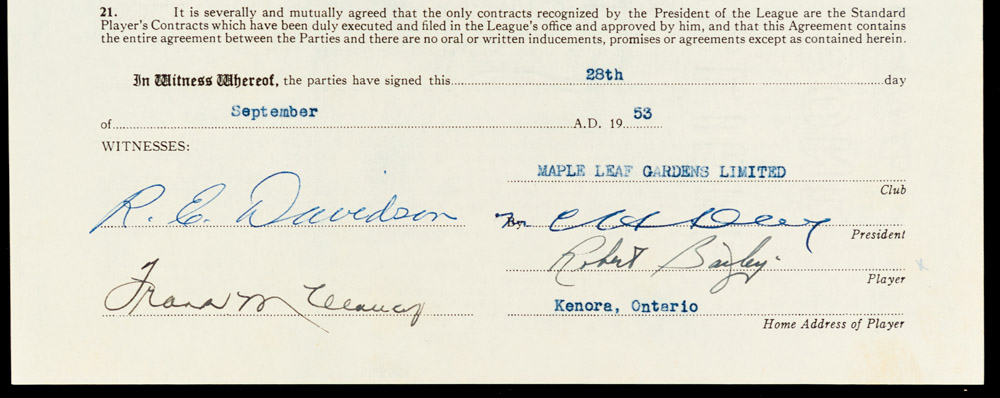 21. It is severally and mutually agreed that the only contracts recognized by the President of the League are the Standard
Player's Contracts which have been duly executed and filed in the League's office and approved by him, and that this Agreement contains
the entire agreement between the Parties and there are no oral or written inducements, promises or agreements except as contained herein.
In Witness Whereof, the parties have signed this 28th day
of September A.D. 19 53
WITNESSES:
MAPLE LEAF GARDENS LIMITED
Club
R. E. Davidson
By
President
Robert Bailey
Player
Frank M
Kenora, Ontario
Home Address of Player